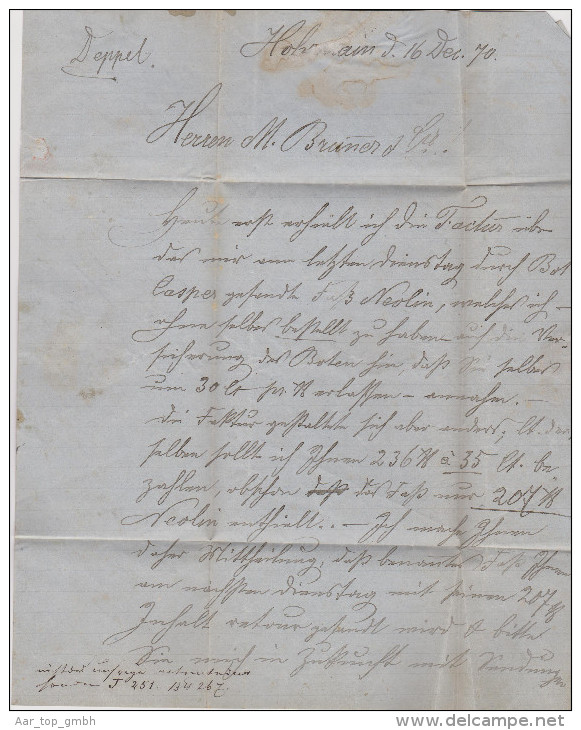 Deppel.
Hoh ain d. 16 Dec. 70.
Herren M. Brunner &
Heute erst erhielt ich die Factur über
das mir am letzten Dienstag durch Bot
Casper gesandte Faß Neolin, welches ich –
ohne selbes bestellt zu haben – auf die Ver-
sicherung des Boten hin, daß Sie selbes
um 30 Ct pr. ℔ erlassen – annahm. –
Die Faktur gestaltete sich aber anders; lt. der
selben sollt ich Ihnen 236 ℔ à 35 Ct. be
zahlen, obschon daß das Faß nur 207 ℔
Neolin enthielt. – Ich mache Ihnen
daher Mittheilung, daß benanntes Faß Ihnen
am nächsten Dienstag mit seinen 207 ℔
Inhalt retour gesandt wird & bitte
Sie mich in Zukunft mit Sendungen
sondern F 251. 134 267.
Aar_top_gmbh